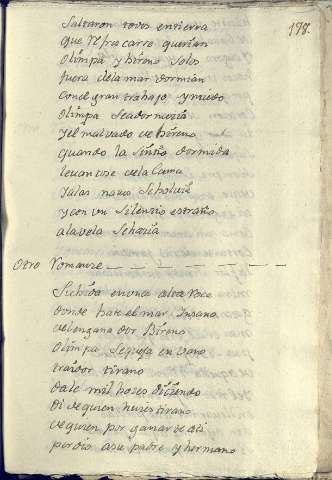 198.
Saltaron todos en tierra
que Refrescarse querian
Olimpa y bireno solos
fuera dela mar dormian
Con el gran trabajo y miedo
Olimpa Se adormezia
y el malvado de bireno
quando la Sintio dormida
leuantose dela Cama
y alas naues Se boluia
y con un Silenzio estraño
ala vela Se hazia
Otro Romanze
Subida en una alta Roca
donde bate el mar Insano
del engañador Bireno
Olimpa Se quexa en vano
traidor tirano
dale mil bozes diziendo
Di de quien huies tirano
de quien por ganarte ati
perdio a su padre y hermano